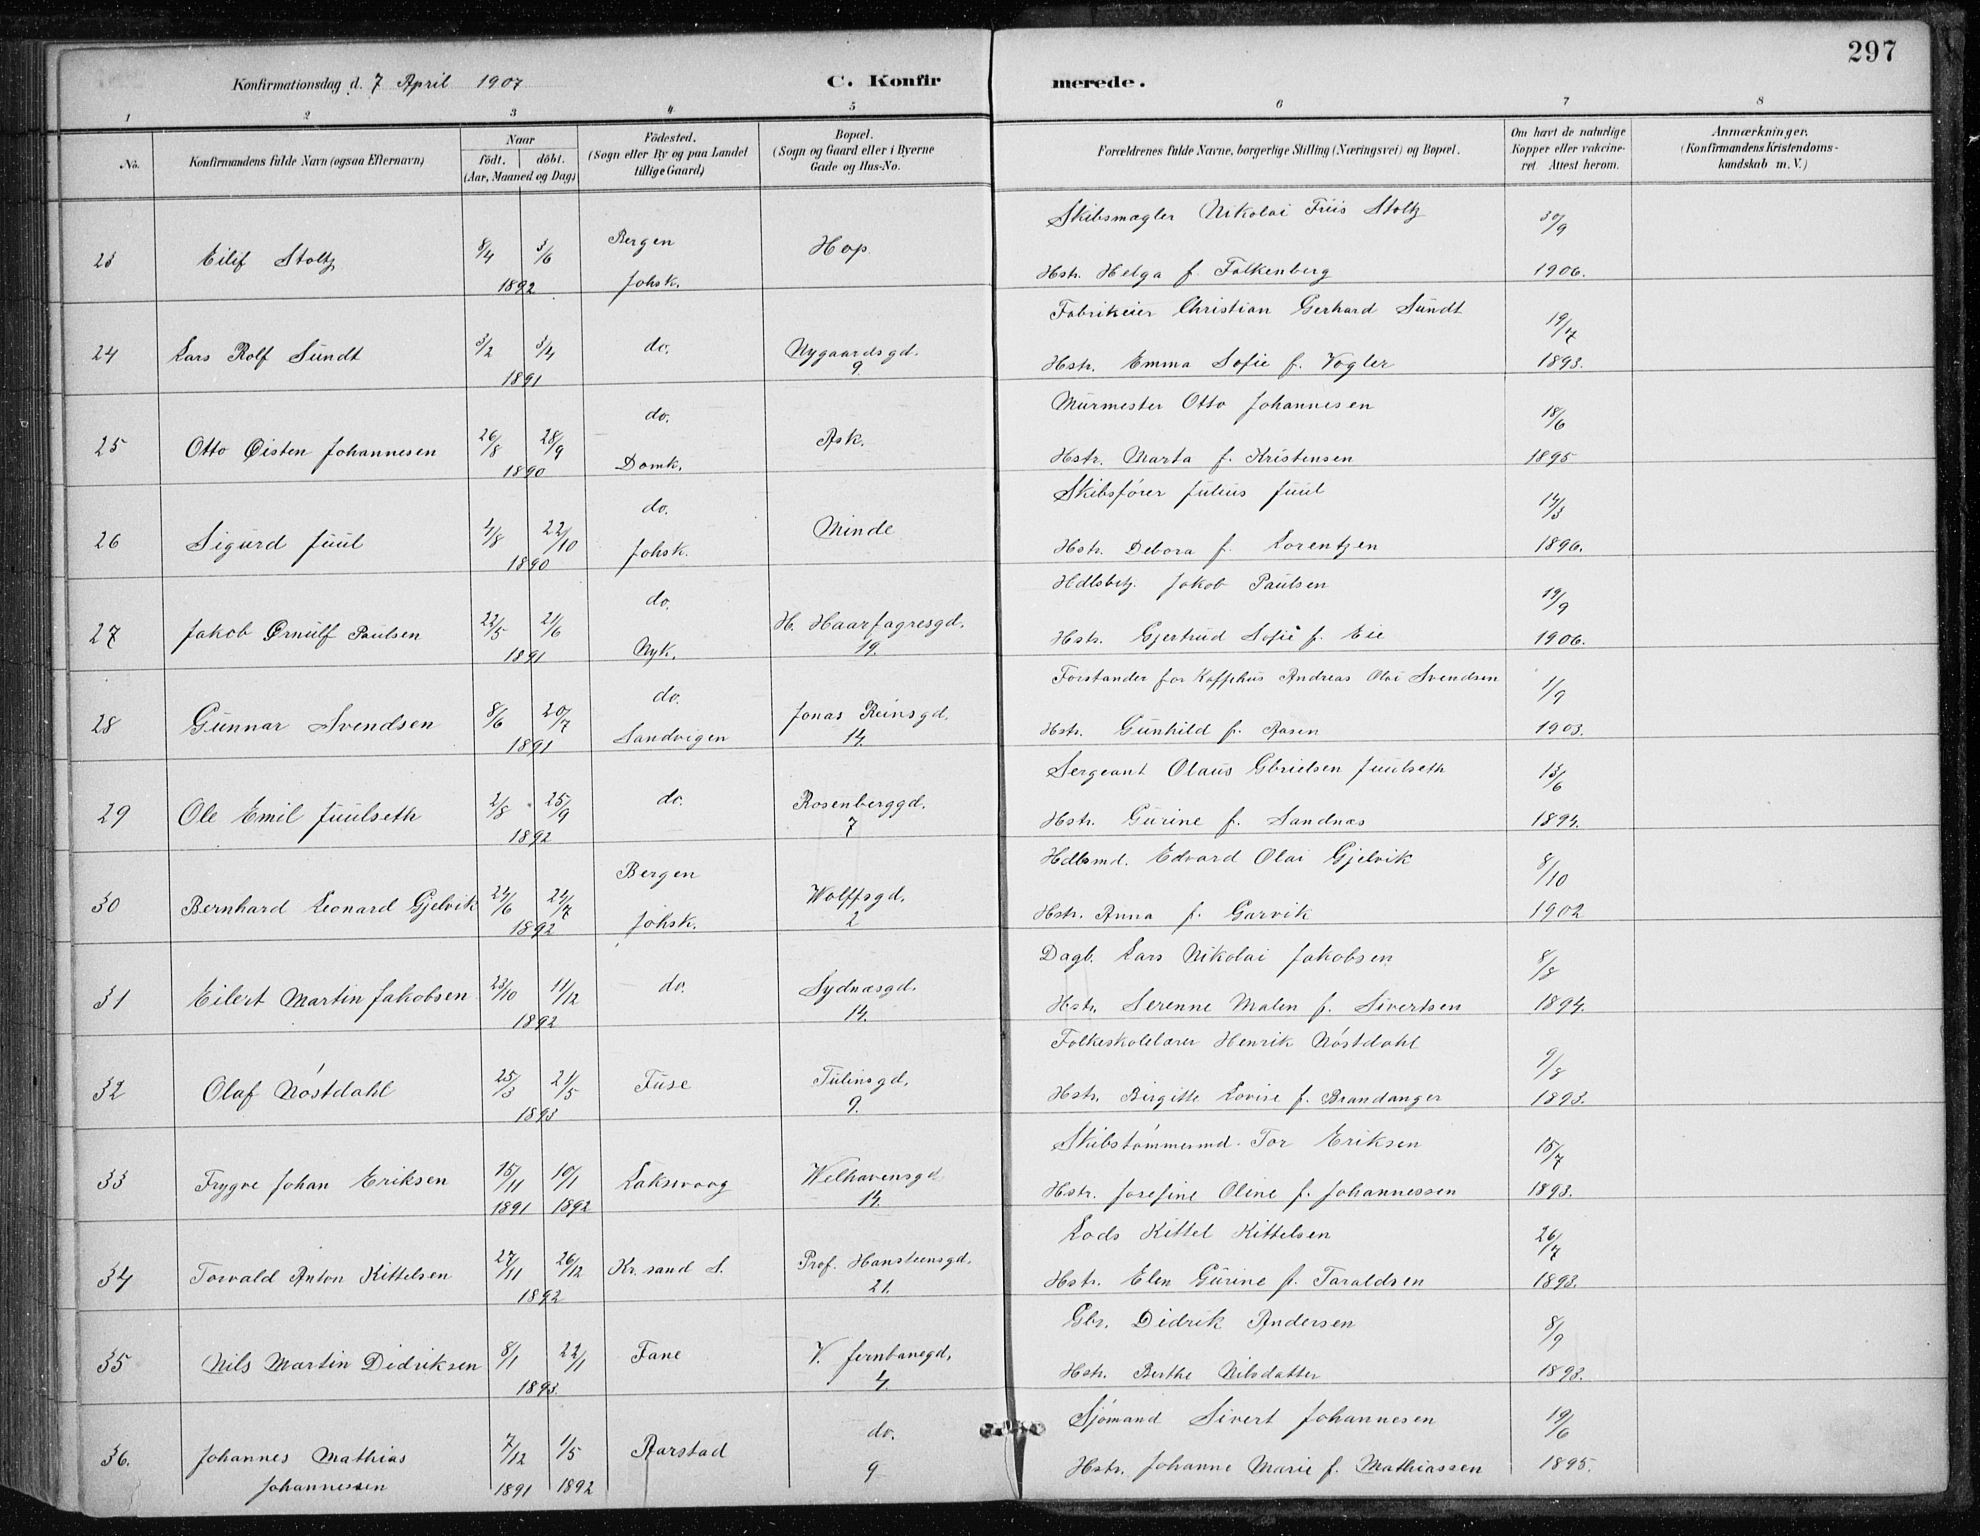 297
Konfirmationsdag d. 7 April 1907
C. Konfirmerede.
1 2 3 4 5 6 7 8
No.
Konfirmandens fulde Navn (ogsaa Efternavn)
Naar
födt. döbt.
(Aar, Maaned og Dag)
Födested.
(Sogn eller By og paa Landet
tillige Gaard)
Bopæl.
(Sogn og Gaard eller i Byerne
Gade og Hus-No.
Forældrenes fulde Navne, borgerlige Stilling (Næringsvei) og Bopæl.
Om havt de naturlige
Kopper eller vakcine-
ret. Attest herom.
Anmærkninger.
(Konfirmandens Kristendoms-
kundskab m. V.)
23 Eilif Stoltz 8/4 3/6 1892 Bergen Johsk. Hop.
Skibsmægler Nikolai Friis Stoltz 30/9
Hstr. Helga f. Falkenberg 1906.
24 Lars Rolf Sundt 3/2 3/4 1891 do. Nygaardsgd. 9.
Fabrikeier Christian Gerhard Sundt 19/7
Hstr. Emma Sofie f. Vogler 1893.
25 Otto Øisten Johannesen 26/8 28/9 1890 do. Domk. Ask.
Murmester Otto Johannesen 18/6
Hstr. Marta f. Kristensen 1895
26 Sigurd Juul 4/8 22/10 1890 do. Johsk. Minde
Skibsfører Julius Juul 14/3
Hstr. Debora f. Lorentzen 1896.
27 Jakob Ørnulf Paulsen 22/5 21/6 1891 do. Nyk. H. Haarfagresgd. 19.
Hdlsbetj. Jakob Paulsen 19/9
Hstr. Gjertrud Sofie f. Eie 1906.
28 Gunnar Svendsen 8/6 20/7 1891 do. Sandvigen Jonas Reinsgd. 14.
Forstander for Kaffehus Andreas Olai Svendsen 1/9
Hstr. Gunhild f. Aasen 1903.
29 Ole Emil Juulseth 2/8 25/9 1892 do. Rosenberggd. 7
Sergeant Olaus Gbrielsen Juulseth 13/6
Hstr. Gurine f. Sandnæs 1894.
30 Bernhard Leonard Gjelvik 24/6 24/7 1892 Bergen Johsk. Wolffsgd. 2
Hdlsmd. Edvard Olai Gjelvik 8/10
Hstr. Anna f. Garvik 1902
31 Eilert Martin Jakobsen 23/10 11/12 1892 do. Sydnæsgd. 14.
Dagb. Lars Nikolai Jakobsen 8/8
Hstr. Serenne Malen f. Sivertsen 1894.
32 Olaf Nöstdahl 25/3 21/5 1893 Fuse Tulinsgd. 9.
Folkeskolelærer Henrik Nöstdahl 9/8
Hstr. Birgitte Lovise f. Brandanger 1893.
33 Trygve Johan Eriksen 15/11 1891 10/1 1892 Laksevaag Welhavensgd. 14.
Skibstömmermd. Tor Eriksen 15/7
Hstr. Josefine Oline f. Johannessen 1893.
34 Torvald Anton Kittelsen 27/11 26/12 1892 Kr.sand S. Prof. Hansteensgd. 21.
Lods Kittel Kittelsen 26/7
Hstr. Elen Gurine f. Taraldsen 1893.
35 Nils Martin Didriksen 8/1 22/1 1893. Fane V. Jernbanegd. 4.
Gbr. Didrik Andersen 8/9
Hstr. Berthe Nilsdatter 1893.
36. Johannes Mathias Johannessen 7/12 1891 1/5 1892 Aarstad do. 9
Sjömand Sivert Johannesen 19/6
Hstr. Johanne Marie f. Mathiassen 1895.